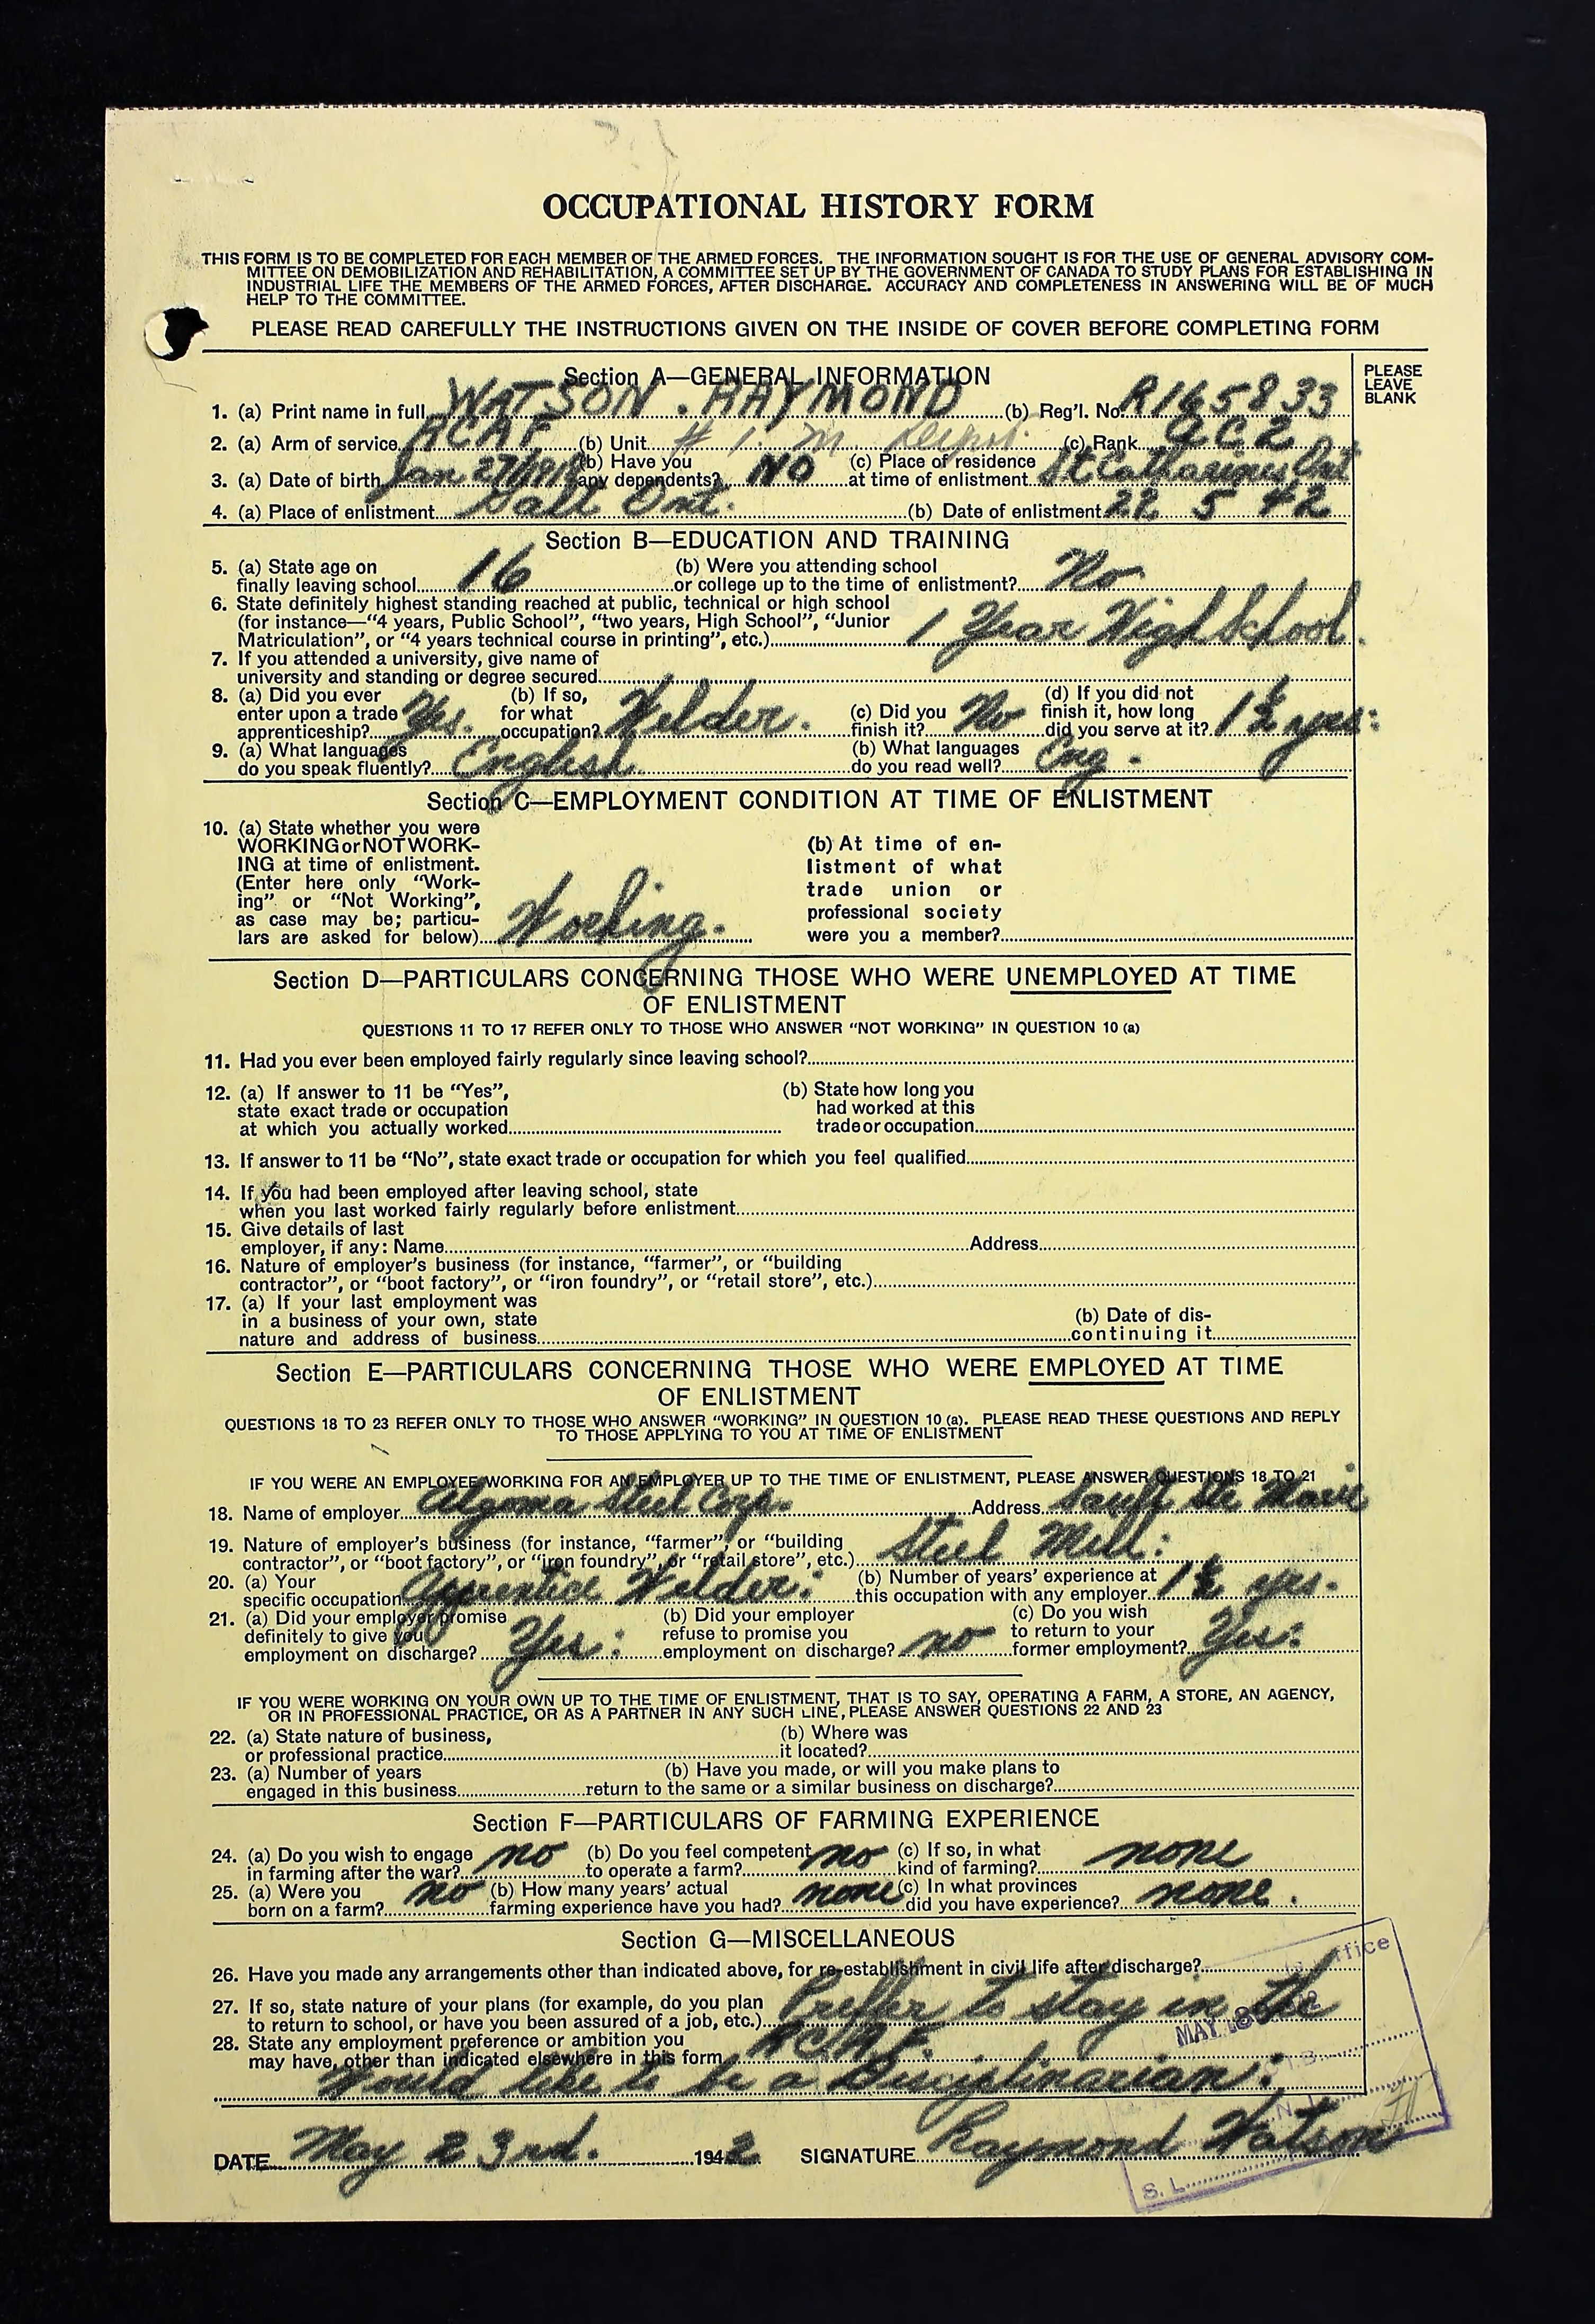 OCCUPATIONAL HISTORY FORM
THIS FORM IS TO BE COMPLETED FOR EACH MEMBER OF THE ARMED FORCES. THE INFORMATION SOUGHT IS FOR THE USE OF GENERAL ADVISORY COM-
MITTEE ON DEMOBILIZATION AND REHABILITATION, A COMMITTEE SET UP BY THE GOVERNMENT OF CANADA TO STUDY PLANS FOR ESTABLISHING IN
INDUSTRIAL LIFE THE MEMBERS OF THE ARMED FORCES, AFTER DISCHARGE. ACCURACY AND COMPLETENESS IN ANSWERING WILL BE OF MUCH
HELP TO THE COMMITTEE.
PLEASE READ CAREFULLY THE INSTRUCTIONS GIVEN ON THE INSIDE OF COVER BEFORE COMPLETING FORM
PLEASE
LEAVE
BLANK
Section A—GENERAL INFORMATION
1. (a) Print name in full WATSON . RAYMOND (b) Reg'l. No. R165833
2. (a) Arm of service RCAF (b) Unit # 1. M. Depot. (c) Rank AC2
3. (a) Date of birth Jan 27/ (b) Have you any dependents? NO (c) Place of residence at time of enlistment St Catharines Ont
4. (a) Place of enlistment Galt Ont. (b) Date of enlistment 22 5 42
Section B—EDUCATION AND TRAINING
5. (a) State age on (b) Were you attending school
finally leaving school 16 or college up to the time of enlistment? No
6. State definitely highest standing reached at public, technical or high school
(for instance—"4 years, Public School", "two years, High School", "Junior
Matriculation", or "4 years technical course in printing", etc.) 1 Year High School.
7. If you attended a university, give name of
university and standing or degree secured
8. (a) Did you ever (b) If so, (d) If you did not
enter upon a trade Yes. for what Welder. (c) Did you No finish it, how long 1½ yrs:
apprenticeship? occupation? finish it? did you serve at it?
9. (a) What languages (b) What languages
do you speak fluently? English do you read well? Eng.
Section C—EMPLOYMENT CONDITION AT TIME OF ENLISTMENT
10. (a) State whether you were
WORKING or NOT WORK-
ING at time of enlistment.
(Enter here only "Work-
ing" or "Not Working",
as case may be; particu-
lars are asked for below) Working.
(b) At time of en-
listment of what
trade union or
professional society
were you a member?
Section D—PARTICULARS CONCERNING THOSE WHO WERE UNEMPLOYED AT TIME
OF ENLISTMENT
QUESTIONS 11 TO 17 REFER ONLY TO THOSE WHO ANSWER "NOT WORKING" IN QUESTION 10 (a)
11. Had you ever been employed fairly regularly since leaving school?
12. (a) If answer to 11 be "Yes", (b) State how long you
state exact trade or occupation had worked at this
at which you actually worked trade or occupation
13. If answer to 11 be "No", state exact trade or occupation for which you feel qualified
14. If you had been employed after leaving school, state
when you last worked fairly regularly before enlistment
15. Give details of last
employer, if any: Name Address
16. Nature of employer's business (for instance, "farmer", or "building
contractor", or "boot factory", or "iron foundry", or "retail store", etc.)
17. (a) If your last employment was
in a business of your own, state (b) Date of dis-
nature and address of business continuing it
Section E—PARTICULARS CONCERNING THOSE WHO WERE EMPLOYED AT TIME
OF ENLISTMENT
QUESTIONS 18 TO 23 REFER ONLY TO THOSE WHO ANSWER "WORKING" IN QUESTION 10 (a). PLEASE READ THESE QUESTIONS AND REPLY
TO THOSE APPLYING TO YOU AT TIME OF ENLISTMENT
IF YOU WERE AN EMPLOYEE WORKING FOR AN EMPLOYER UP TO THE TIME OF ENLISTMENT, PLEASE ANSWER QUESTIONS 18 TO 21
18. Name of employer Algoma Steel Corp. Address Sault Ste Marie
19. Nature of employer's business (for instance, "farmer", or "building
contractor", or "boot factory", or "iron foundry", or "retail store", etc.) Steel Mill:
20. (a) Your (b) Number of years' experience at
specific occupation Apprentice Welder: this occupation with any employer 1½ yrs.
21. (a) Did your employer promise (b) Did your employer (c) Do you wish
definitely to give you Yes: refuse to promise you no to return to your Yes:
employment on discharge? employment on discharge? former employment?
IF YOU WERE WORKING ON YOUR OWN UP TO THE TIME OF ENLISTMENT, THAT IS TO SAY, OPERATING A FARM, A STORE, AN AGENCY,
OR IN PROFESSIONAL PRACTICE, OR AS A PARTNER IN ANY SUCH LINE, PLEASE ANSWER QUESTIONS 22 AND 23
22. (a) State nature of business, (b) Where was
or professional practice it located?
23. (a) Number of years (b) Have you made, or will you make plans to
engaged in this business return to the same or a similar business on discharge?
Section F—PARTICULARS OF FARMING EXPERIENCE
24. (a) Do you wish to engage no (b) Do you feel competent no (c) If so, in what none
in farming after the war? to operate a farm? kind of farming?
25. (a) Were you no (b) How many years' actual none (c) In what provinces none.
born on a farm? farming experience have you had? did you have experience?
Section G—MISCELLANEOUS
26. Have you made any arrangements other than indicated above, for re-establishment in civil life after discharge?
27. If so, state nature of your plans (for example, do you plan
to return to school, or have you been assured of a job, etc.) Preffer to stay in the
28. State any employment preference or ambition you R.C.A.F.
may have, other than indicated elsewhere in this form
Would like to be a Disciplinarian:
MAY
S. L.
DATE May 23rd. 1942 SIGNATURE Raymond Watson